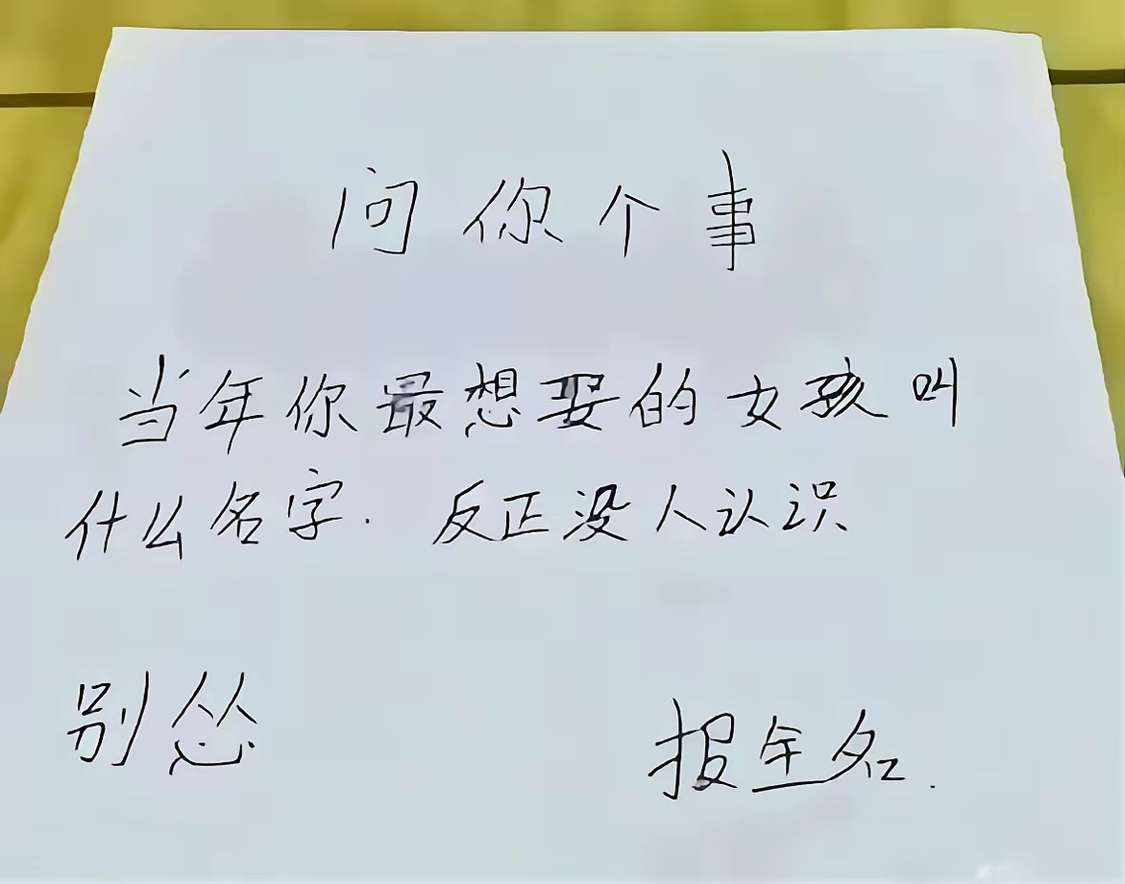 问你个事
当年你最想娶的女孩叫
什么名字. 反正没人认识
别怂 报全名.